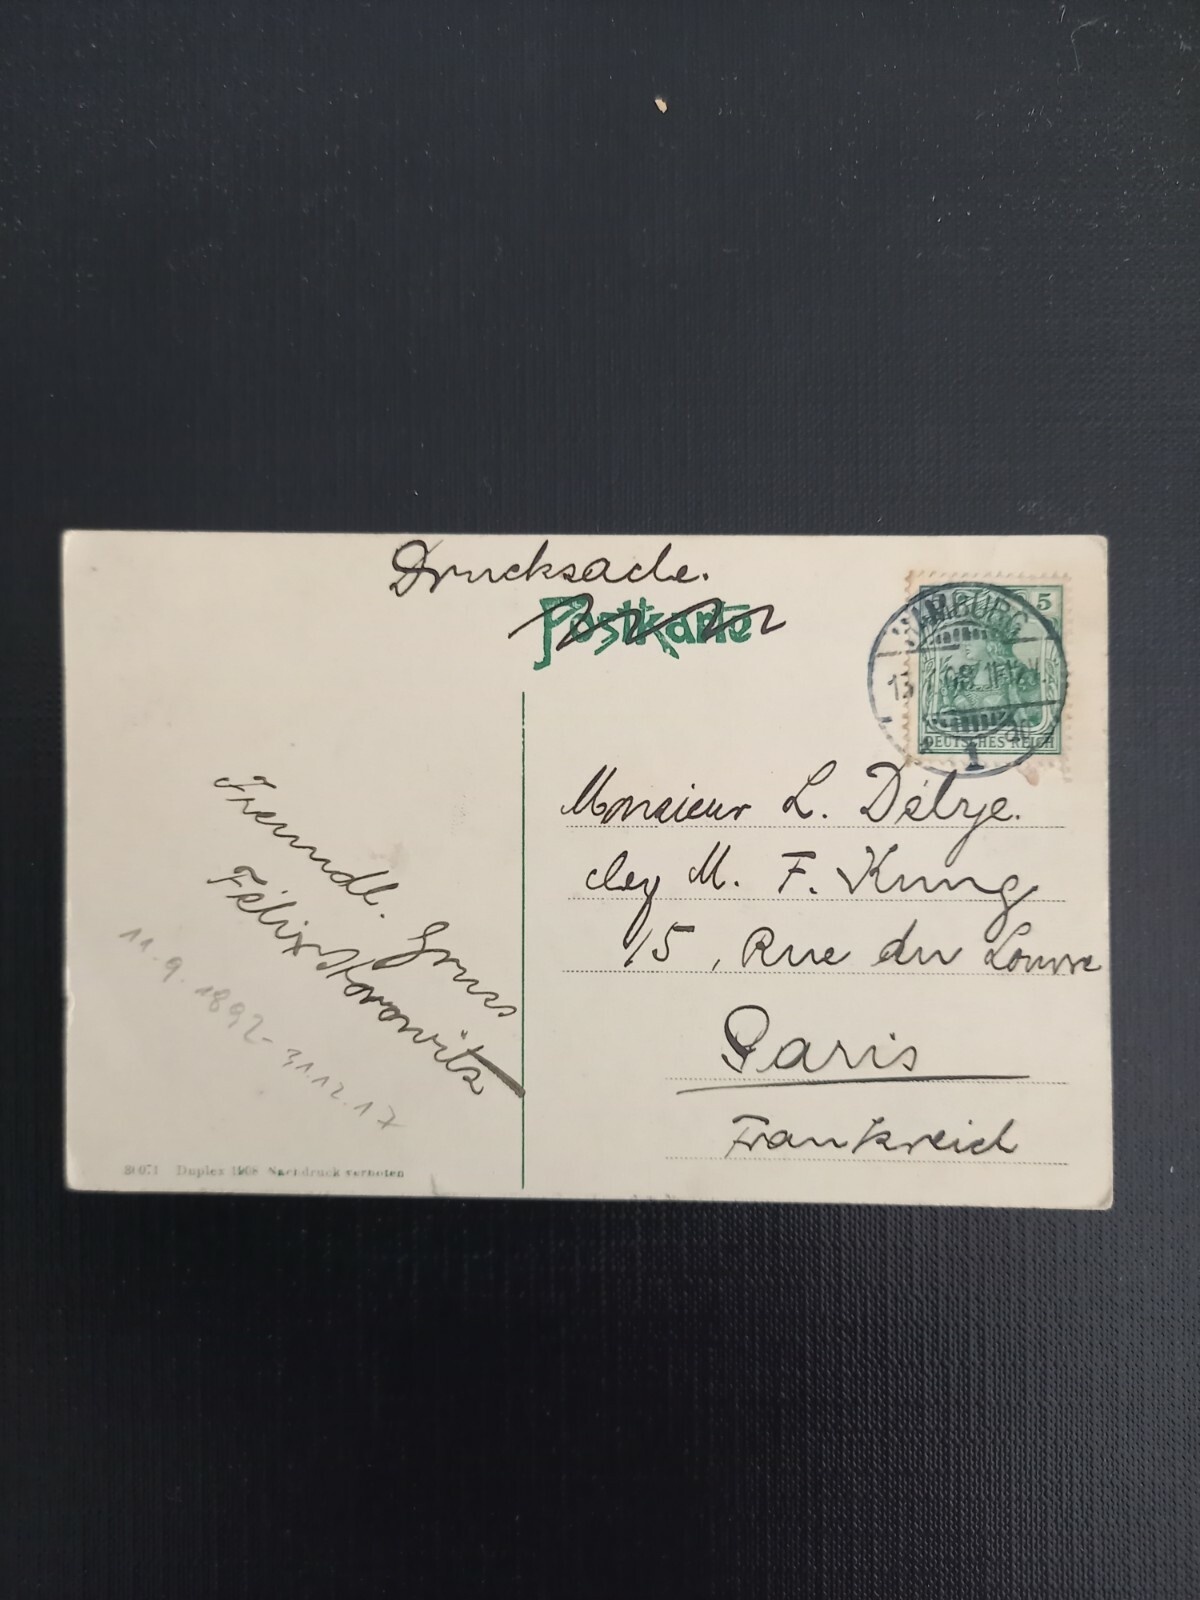 Drucksache.
Postkarte
HAMBURG
5
08.11-12V.
1
DEUTSCHES REICH
Monsieur L. Delzje.
chez M. F. Kung
15, Rue du Louvre
Paris
Frankreich
Freundl. Gruss
Félix Horowitz
11.9.1892-31.12.17
Duplex 1908 Nachdruck verboten